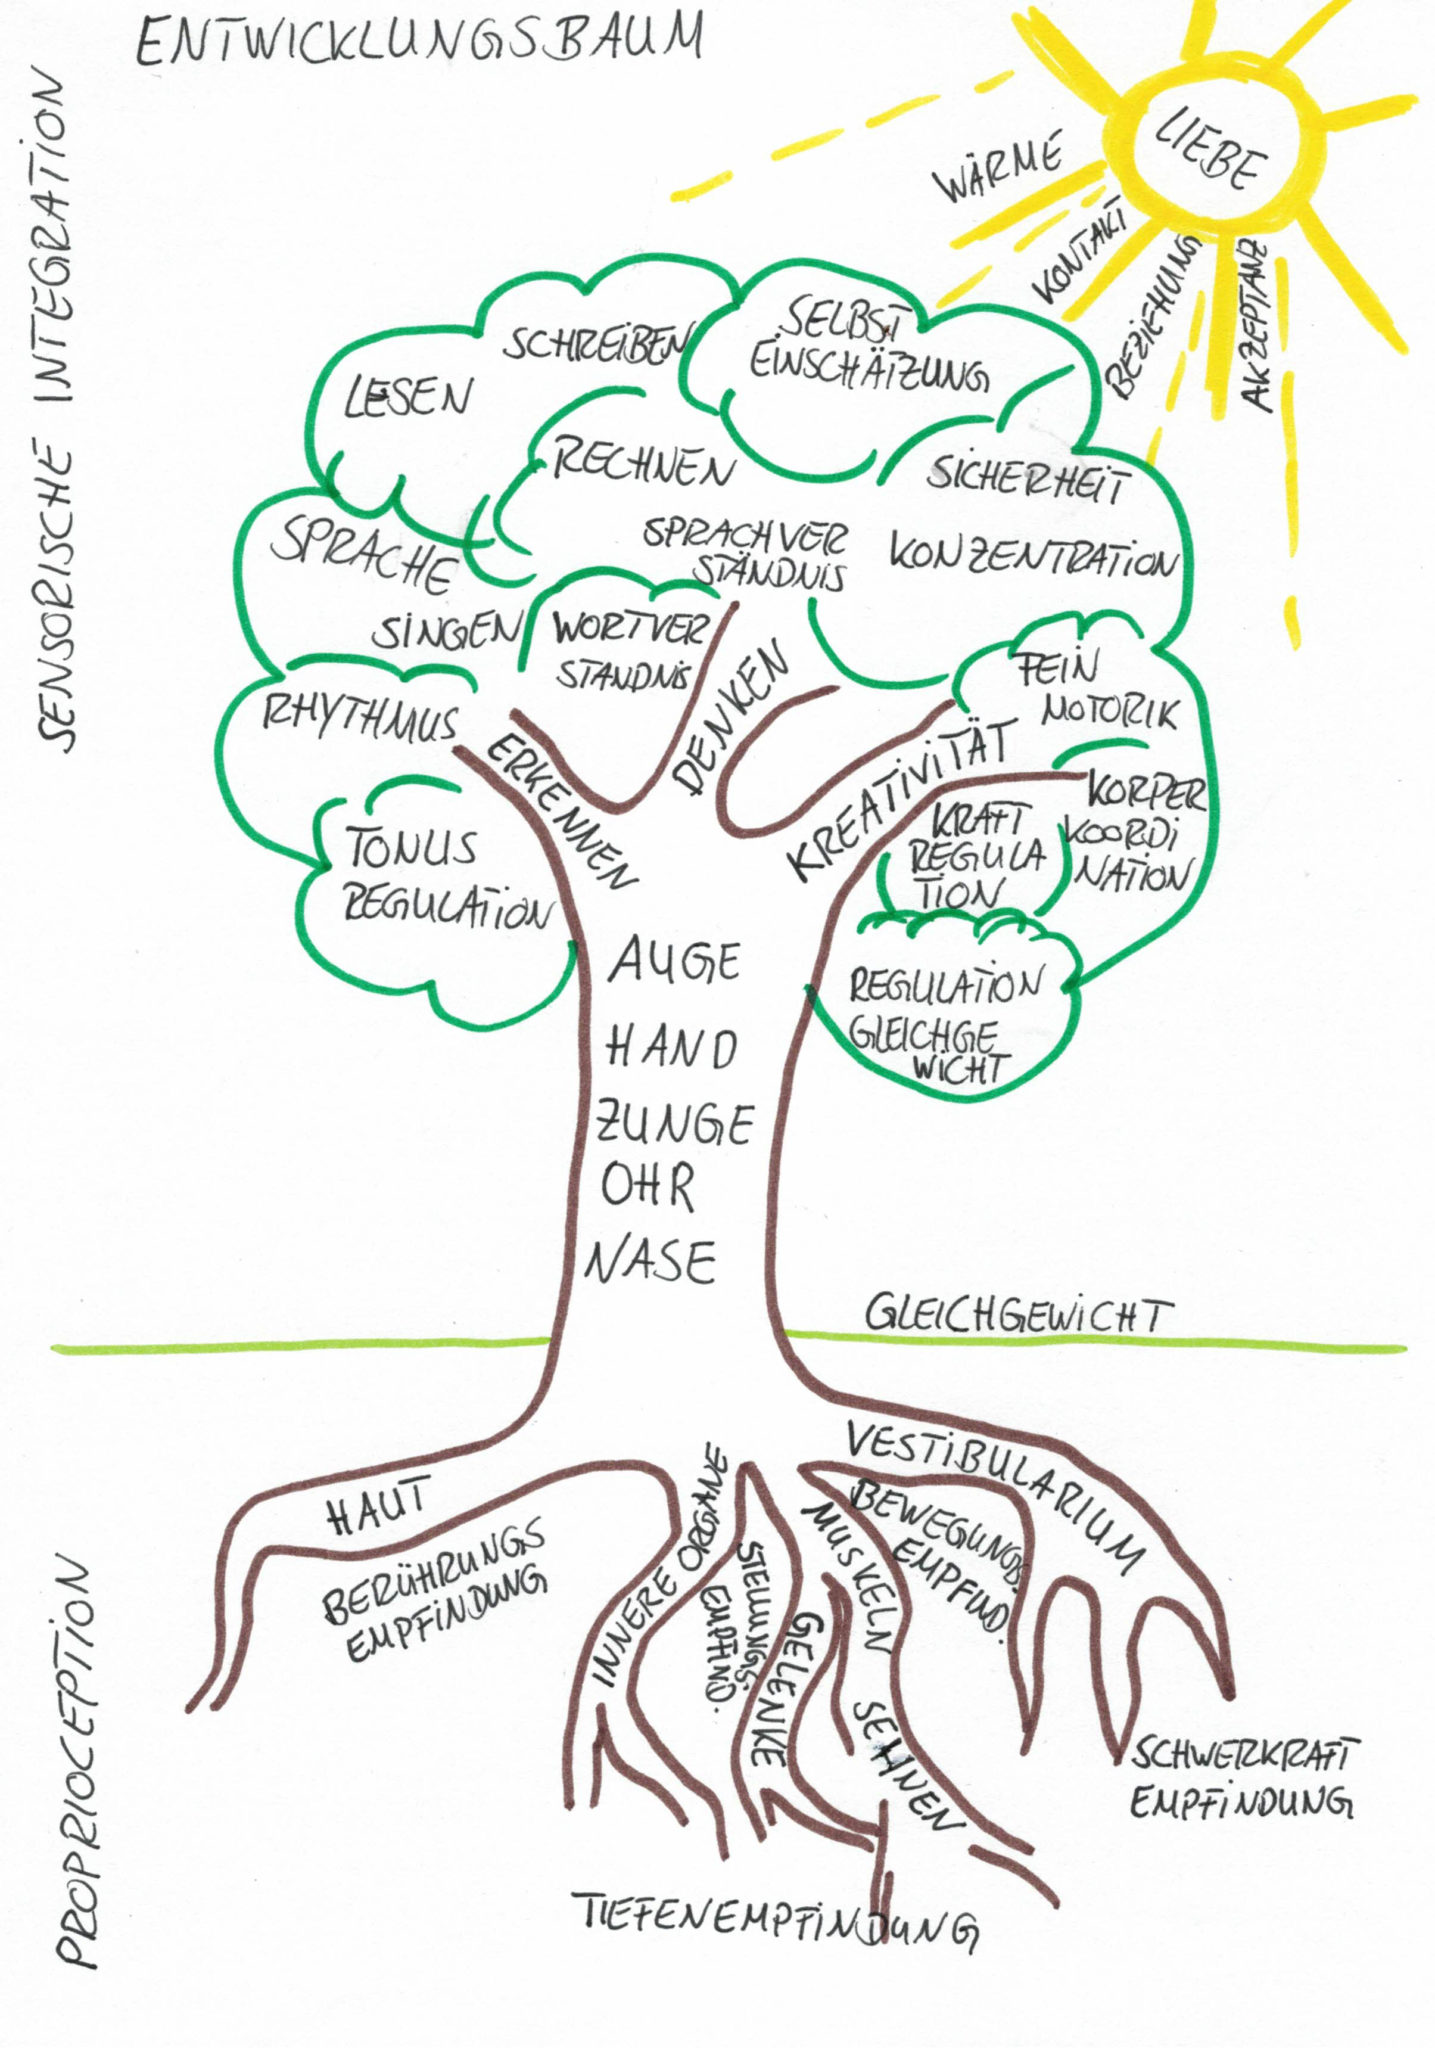 ENTWICKLUNGSBAUM
SENSORISCHE INTEGRATION
LIEBE
WÄRME
KONTAKT
BEZIEHUNG
AKZEPTANZ
SCHREIBEN
SELBST
EINSCHÄTZUNG
LESEN
RECHNEN
SICHERHEIT
SPRACHE
SPRACHVER
STÄNDNIS
KONZENTRATION
SINGEN
WORTVER
STÄNDNIS
FEIN
MOTORIK
RHYTHMUS
ERKENNEN
DENKEN
KREATIVITÄT
KÖRPER
KOORDI
NATION
KRAFT
REGULA
TION
TONUS
REGULATION
REGULATION
GLEICHGE
WICHT
AUGE
HAND
ZUNGE
OHR
NASE
GLEICHGEWICHT
PROPRIOCEPTION
HAUT
BERÜHRUNGS
EMPFINDUNG
INNERE ORGANE
STELLUNGS
EMPFIND.
GELENKE
MUSKELN
SEHNEN
BEWEGUNGS.
EMPFIND.
VESTIBULARIUM
SCHWERKRAFT
EMPFINDUNG
TIEFENEMPFINDUNG